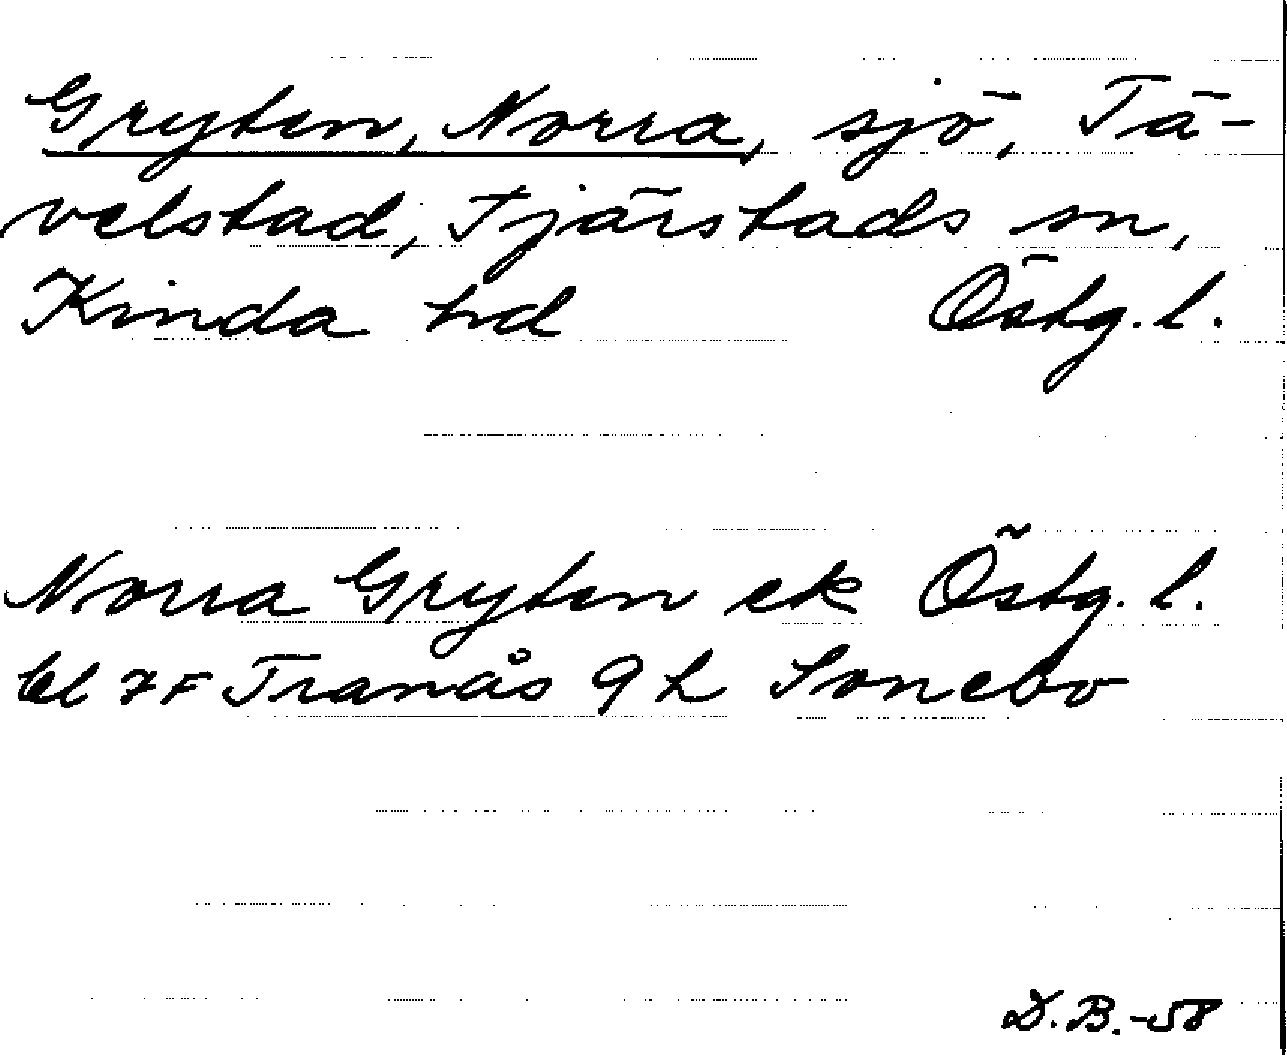 Gryten, Norra, sjö, Tä-
velstad, Tjärstads sn,
Kinda hd Östg. l.
Norra Gryten ek Östg. l.
bl 7F Tranås 9 h Sonebo
D. B. -58